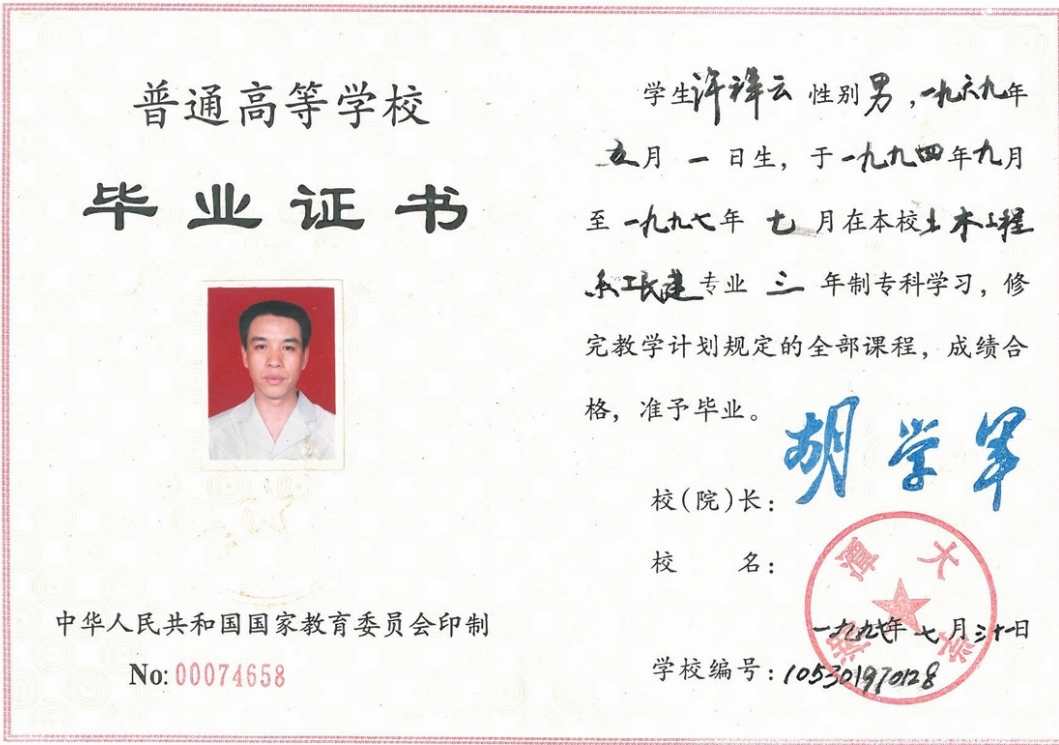 普通高等学校
毕业证书
中华人民共和国国家教育委员会印制
No:00074658
学生许祥云 性别男,一九六九年
五月 一 日生,于一九九四年九月
至一九九七年 七 月在本校土木工程
系工民建专业 三 年制专科学习,修
完教学计划规定的全部课程,成绩合
格,准予毕业。
校(院)长:胡学军
校 名:
湘潭大学
一九九七年七月三十一日
学校编号:105301970128